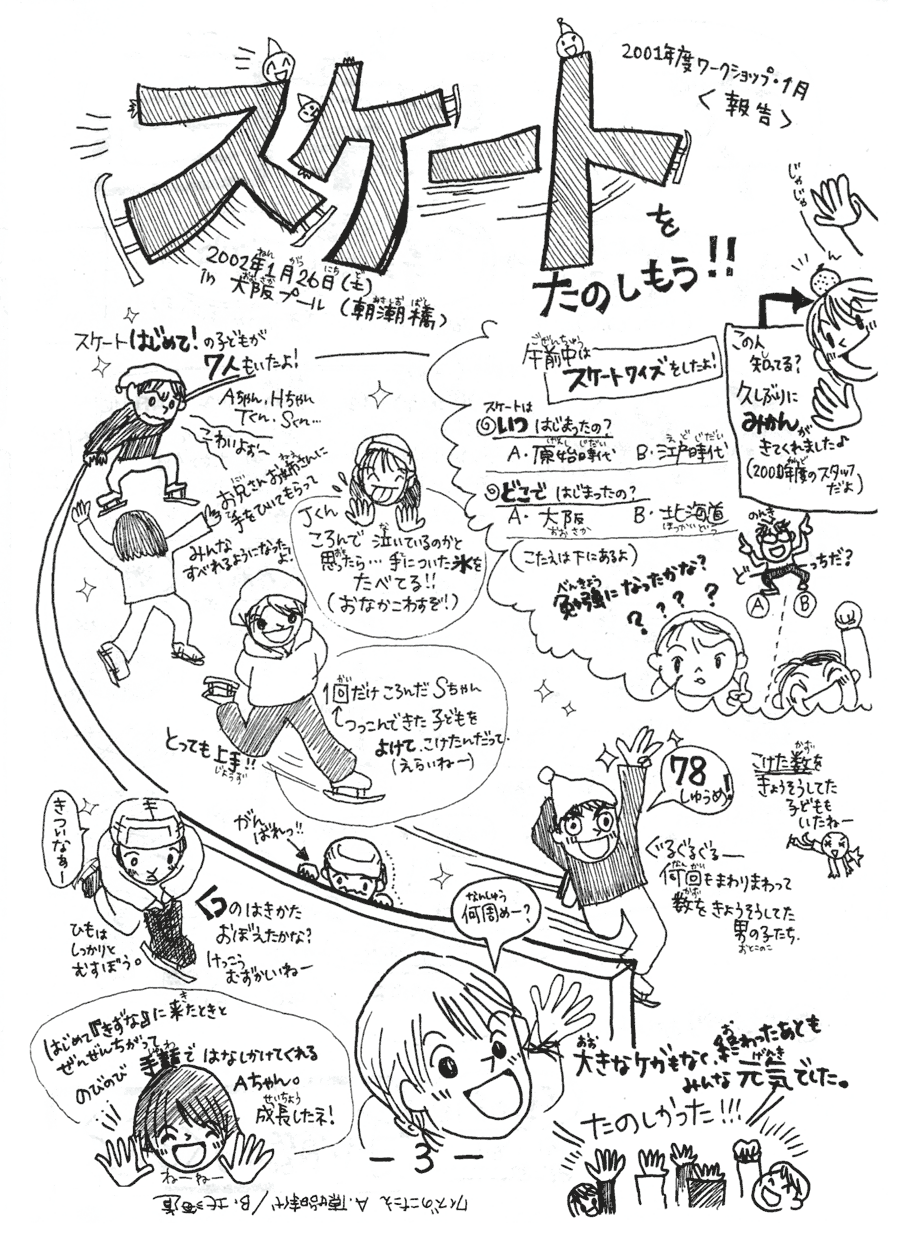 2001年度ワークショップ・1月
<報告>
スケート
を
たのしもう!!
2002年1月26日(土)
in 大阪プール(朝潮橋)
じゃじゃーん
このん
知ってる?
久しぶりに
みかんが
きてくれました♪
(2000年度のスタッフ
だよ)
スケートはじめて!の子どもが
7人もいたよ!
Aちゃん、Hちゃん
Tくん、Sくん…
こわいよぉ〜
お兄さんお姉さんに
手をひいてもらって
みんな
すべれるようになったよ
Jくん
ころんで泣いているのかと
思ったら…手についた氷を
たべてる!!
(おなかこわすぞ!)
午前中は
スケートクイズをしたよ!
スケートは
◎いつ はじまったの?
A・原始時代 B・江戸時代
◎どこで はじまったの?
A・大阪 B・北海道
(こたえは下にあるよ)
のんき
ど っちだ?
A B
勉強になったかな?
? ? ? ?
1回だけころんだSちゃん
↑つっこんできた子どもを
よけて、こけたんだって
(えらいねー)
とっても上手!!
がんばれっ!!
78
しゅうめ!
こけた数を
きょうそうしてた
子どもも
いたねー
ぐるぐるぐるー
何回もまわりまわって
数をきょうそうしてた
男の子たち.
きついなぁー
くつのはきかた
おぼえたかな?
けっこう
むずかしいねー
ひもは
しっかりと
むすぼう。
何周めー?
はじめて『きずな』に来たときと
ぜんぜんちがって
のびのび 手話ではなしかけてくれる
Aちゃん。
成長したネ!
ねーねー
大きなケガもなく、終わったあとも
みんな元気でした。
たのしかった!!!
- 3 -
クイズのこたえ A.原始時代/B.北海道